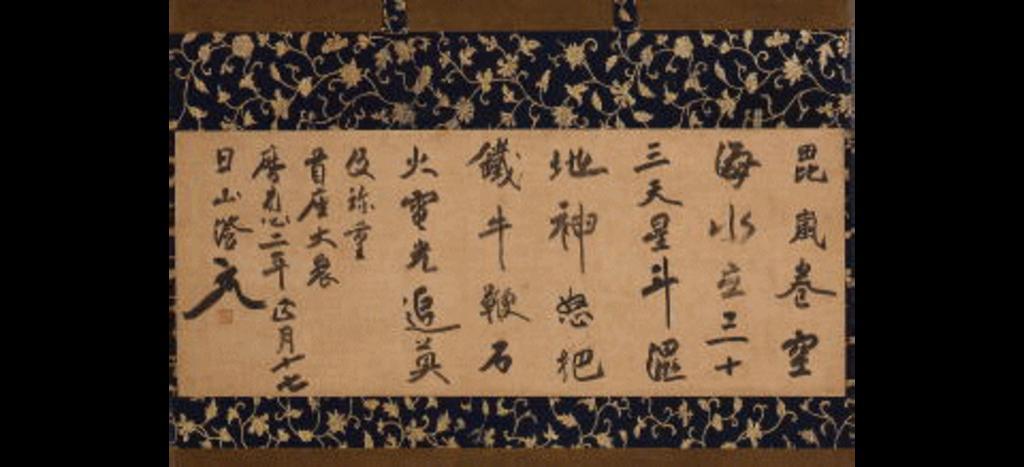 毘嵐巻空
海水立三十
三天星斗湿
地神怒把
鐵牛鞭石
火電光追莫
及珎重
首座大衆
暦応二年正月十七
日山澄